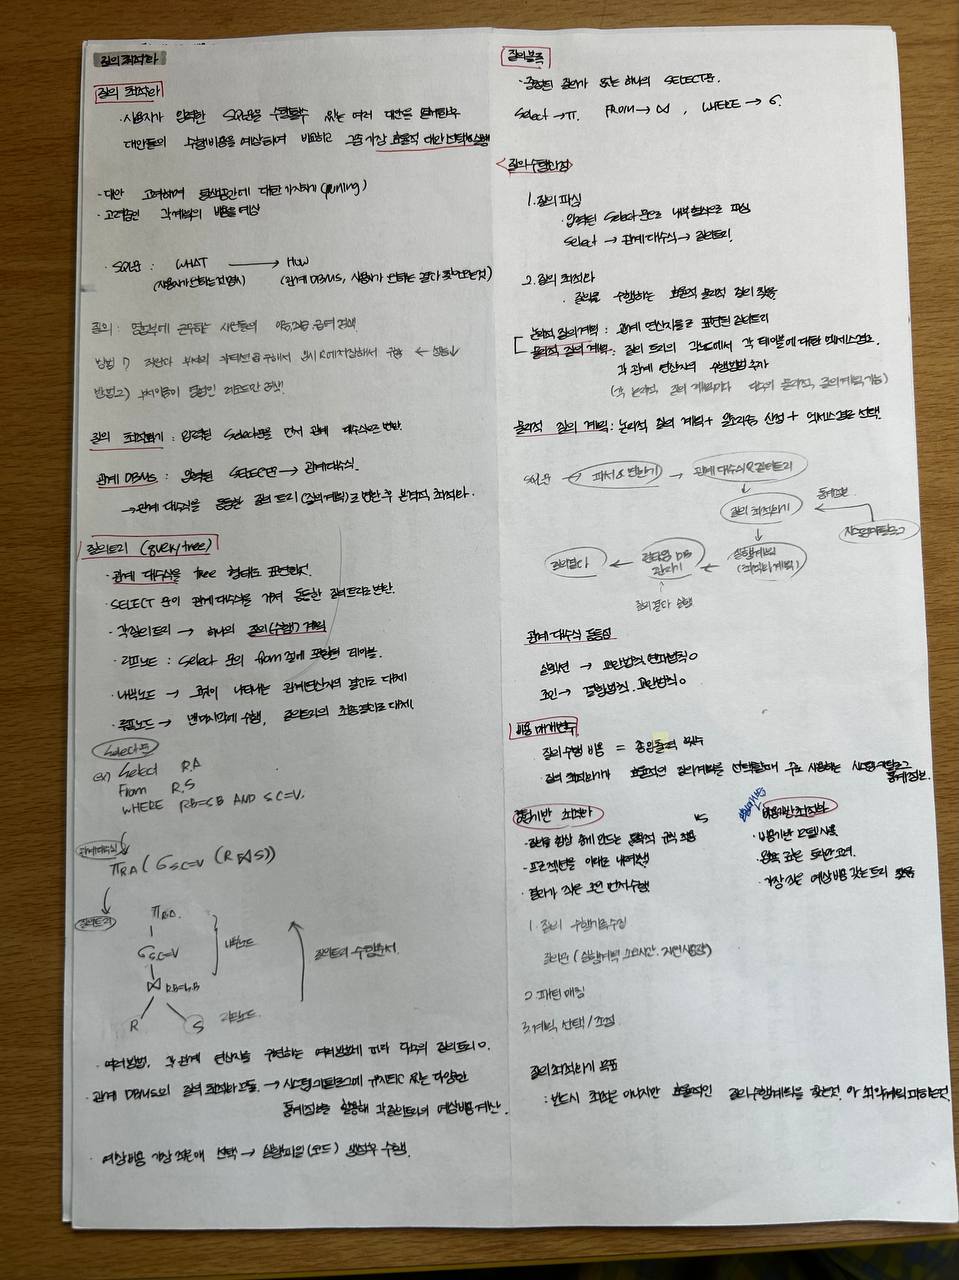 질의 최적화
질의 최적화
· 사용자가 입력한 SQL문을 수행할수 있는 여러 대안을
대안들의 수행비용을 예상하여 비교하고 그중 가장 효율적 대안 선택
· 대안 고려하며 탐색공간에 대한 가지치기 (pruning)
· 고려중인 각 계획의 비용을 예상
· SQL문 : WHAT → HOW
(사용자가 원하는것 명시) (관계 DBMS, 사용자가 원하는 결과 찾아오는것)
질의 : 근무하는 사원들의 검색
방법 1) 부서의 구해서 저장해서 ← 성능↓
방법 2) 부서이름이 레코드만
질의 최적화기 : 입력된 Select문을 먼저 관계 대수식으로 변환.
관계 DBMS : 입력된 SELECT문 → 관계대수식.
→ 관계 대수식을 동등한 질의 트리 (질의 계획)로 변환후 본격적 최적화.
질의트리 (query tree)
· 관계 대수식을 tree 형태로 표현한것.
· SELECT 문이 관계 대수식을 거쳐 동등한 질의 트리로 변환.
· 각 질의트리 → 하나의 질의(수행) 계획
· 리프노드 : Select 문의 from 절에 포함된 테이블.
· 내부노드 → 관계연산자의 결과로 대체
· 루트노드 → 맨 마지막에 수행, 질의트리의 최종결과로 대체.
Select문
ex) Select R.A
From R.S
WHERE R.B=S.B AND S.C=V.
관계대수식
π R.A ( σ S.C=V (R ⋈ S))
질의트리
π R.A.
σ S.C=V
내부노드
⋈ R.B=S.B
R S 리프노드.
질의트리 수행순서.
· 여러방법, 각 관계 연산자를 구현하는 여러방법에 따라 다수의 질의트리 O.
· 관계 DBMS의 질의 최적화 모듈. → 시스템 카탈로그에 유지되고 있는 다양한
통계정보를 활용해 각 질의트리의 예상비용 계산.
· 예상 비용 가장 적은애 선택 → 실행파일 (코드) 생성후 수행.
질의블록
· 중첩된 질의가 없는 하나의 SELECT문.
Select → π. FROM → ⋈ , WHERE → σ.
질의수행과정
1. 질의 파싱
· 입력된 Select 문으로 내부 형식으로 파싱
Select → 관계 대수식 → 질의트리.
2. 질의 최적화
· 질의를 수행하는 효율적 물리적 질의 찾음
논리적 질의계획 : 관계 연산자들로 표현된 질의트리
물리적 질의 계획 : 질의 트리의 각 노드에서 각 테이블에 대한 액세스경로,
각 관계 연산자의 수행방법 추가
(각 논리적 질의 계획마다 다수의 물리적 질의계획 가능)
물리적 질의 계획 : 논리적 질의 계획 + 알고리즘 선정 + 액세스경로 선택.
SQL문 → 파서 & 변환기 → 관계 대수식 & 질의트리
질의 최적화기
통계정보
시스템 카탈로그
질의결과 ← 런타임 DB 관리기 ← 실행계획 (최적화 계획)
질의 결과 수행
관계 대수식 동등성
실렉션 → 교환법칙 연쇄법칙 O
조인 → 결합법칙, 교환법칙 O
비용 매개변수
질의 수행 비용 = 총 입출력 횟수
질의 최적화기가 효율적인 질의계획을 선택할때 주로 사용하는 시스템 카탈로그
통계정보.
경험기반 최적화 VS 비용기반 최적화
· 항상 규칙 적용
· 프로젝션을 아래로 내려보냄
· 결과가 작은 조인 먼저 수행
· 비용기반 모델 사용
· 왼쪽 깊은 트리만 고려.
· 가장 적은 예상 비용 갖는 트리 찾음
1. 질의 수행기록 수집
질의문 (실행계획, 소요시간, 자원사용량)
2. 패턴 매칭
3. 계획 선택 / 조정
질의 최적화기 목표
: 반드시 최적은 아니지만 효율적인 질의 수행계획을 찾는것. 아 최악 피하는것